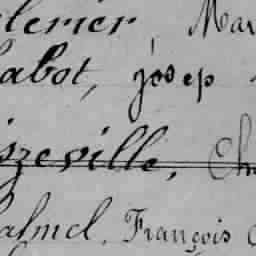 lerier, Mar
abot, josep
szeville, Ch
almel, François